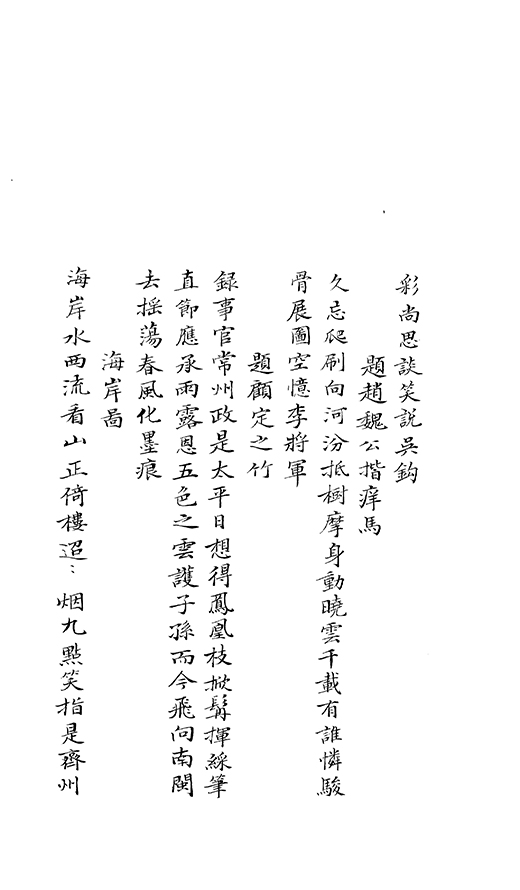 彩尚思談笑説吳鈎
題趙魏公揩痒馬
久忘爬刷向河汾抵樹摩身動曉雲千載有誰憐駿
骨展圖空憶李將軍
題顧定之竹
録事官常州政是太平日想得鳳凰枝掀髯揮綵筆
直節應承雨露恩五色之雲護子孫而今飛向南閩
去摇蕩春風化墨痕
海岸啚
海岸水西流看山正倚樓迢〻烟九點笑指是齊州